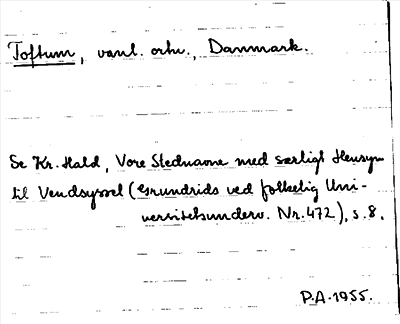 Toftum, vanl. ortn., Danmark.
Se Kr. Hald, Vore Stednavne med særligt Hensyn
til Vendsyssel (Grundrids ved folkelig Uni-
versitetsunderv. Nr. 472), s. 8.
P.A. 1955.